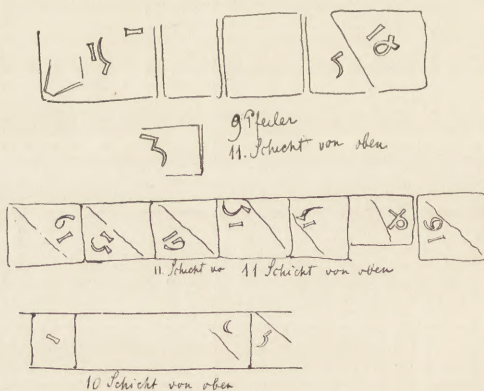 9 Pfeiler
11. Schicht von oben
11. Schicht vo 11 Schicht von oben
10 Schicht von oben